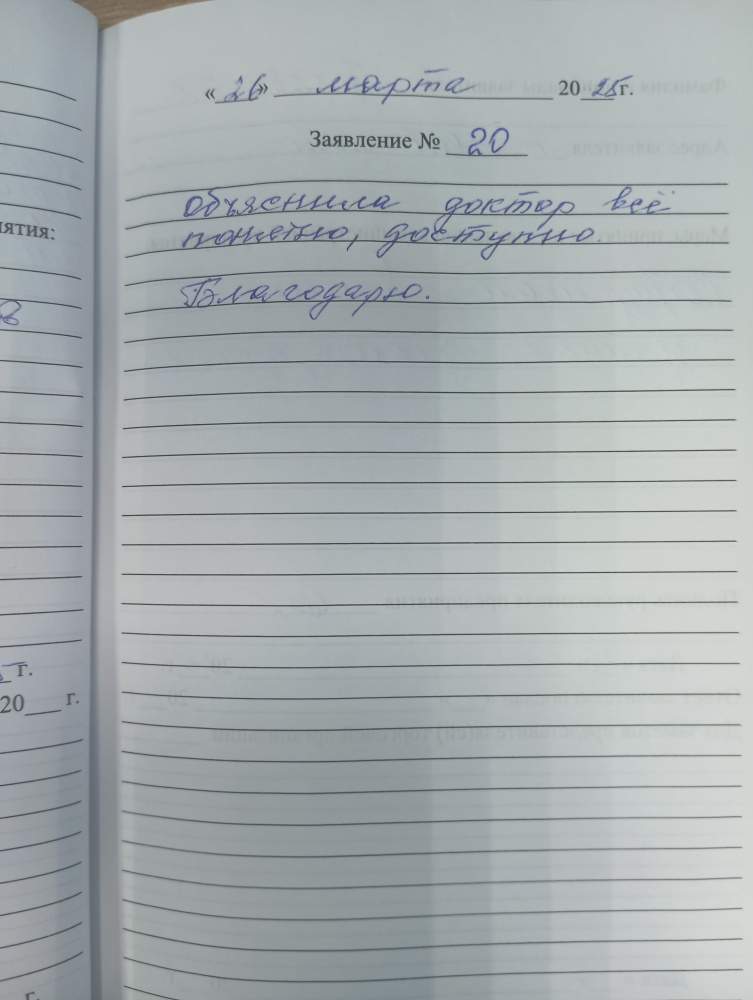 «26» марта 2025г.
Заявление № 20
объяснила доктор всё
понятно, доступно.
Благодарю.
ятия:
г.
20___ г.
г.